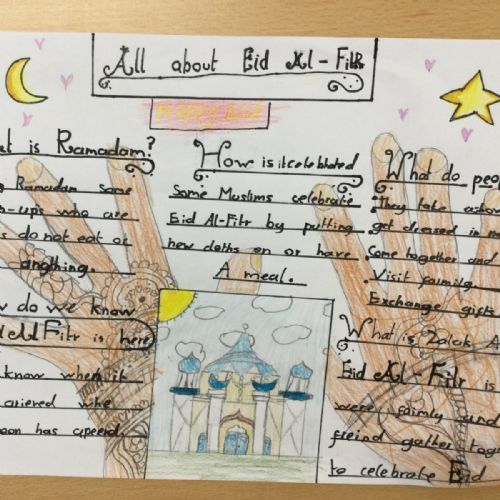 All about Eid Al-Fitr
Happy Eid
is Ramadam?
Ramadam some
-ups who are
do not eat or
angthing.
do we know
Fitr is here
know when it
arieved whe
has apeerd.
How is it celebrated
Some Muslims celebrate
Eid Al-Fitr by putting
new cloths on or have
A meal.
What do
They take
get dressed in
Come together and
Visit family
Exchange gifts
What is Zakk A
Eid Al-Fitr is
were faimly and
freind gather tog
to celebrate Eid